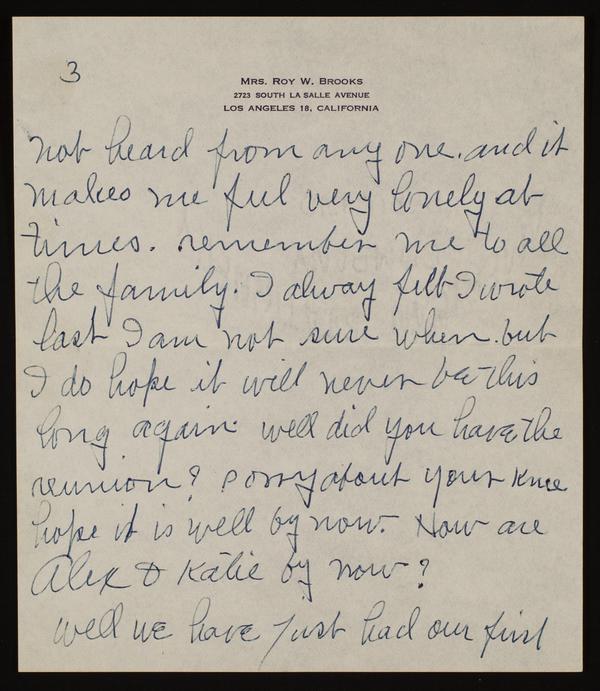 3
MRS. ROY W. BROOKS
2723 SOUTH LA SALLE AVENUE
LOS ANGELES 18, CALIFORNIA
not heard from any one. and it
makes me ful very lonely at
times. remember me to all
the family. I alway felt I wrote
last I am not sure when. but
I do hope it will never be this
long again. well did you have the
reunion? sorry about your knee
hope it is well by now. How are
Alex & Katie by now?
well we have just had our first